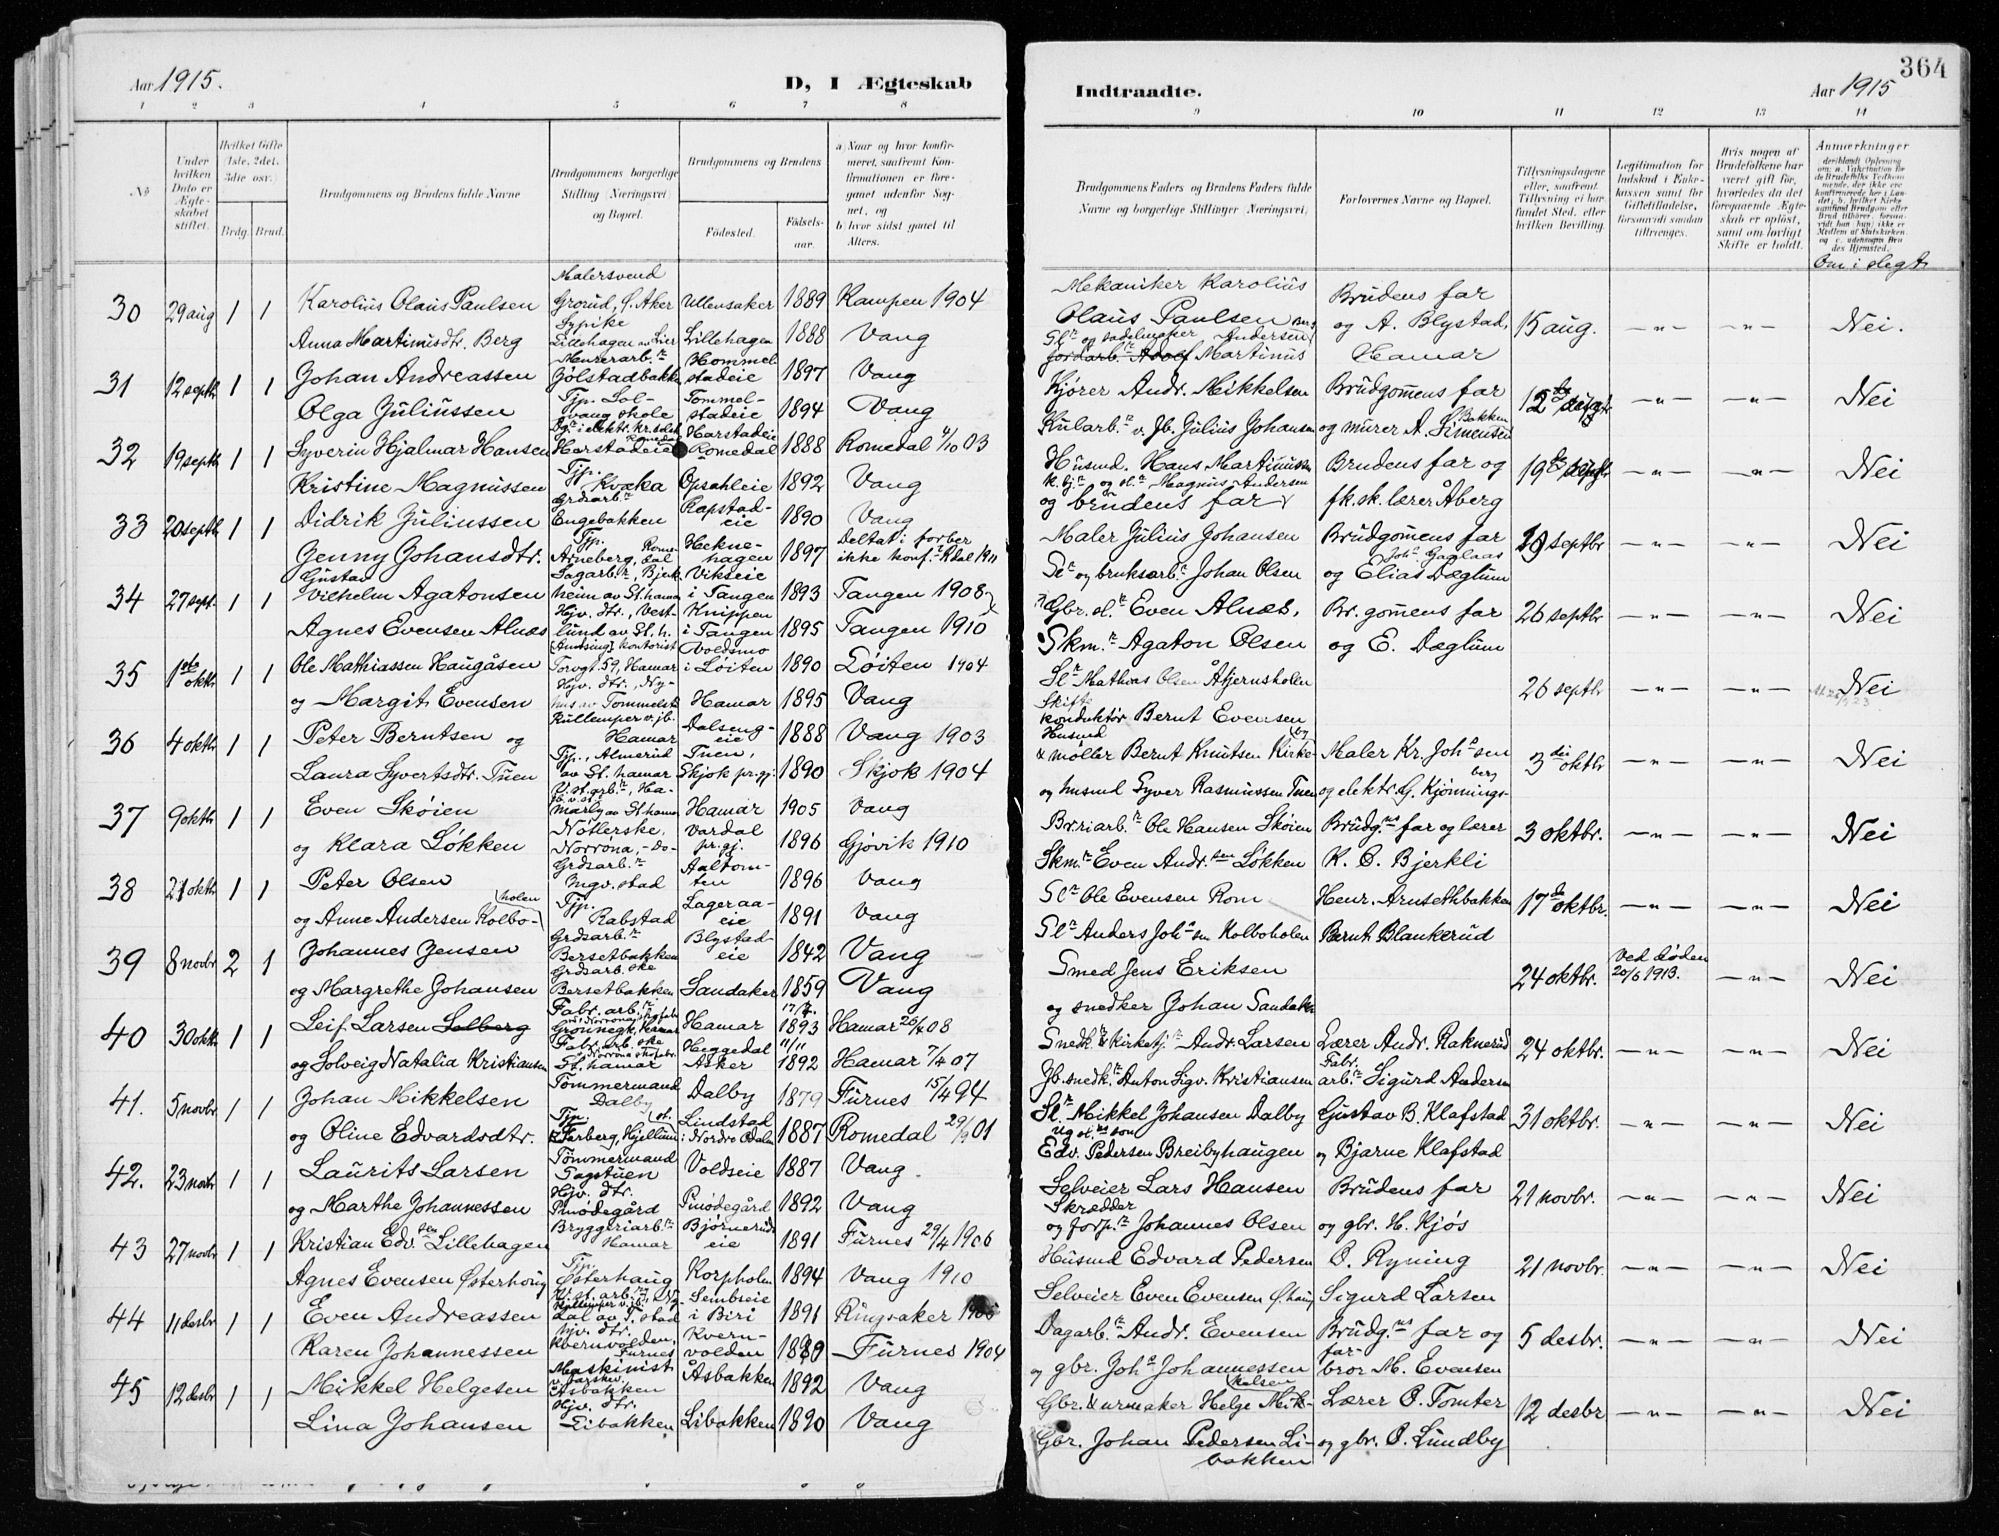 364
Aar 1915. D, I Ægteskab
Indtraadte. Aar 1915
1 2 3 4 5 6 7 8
9 10 11 12 13 14
No
Under hvilken Dato er Ægteskabet stiftet.
Hvilket Gifte (1ste, 2det, 3die osv.)
Brdg. Brud.
Brudgommens og Brudens fulde Navne
Brudgommens borgerlige Stilling (Næringsvei) og Bopæl.
Brudgommens og Brudens
Fødested. Fødselsaar.
a) Naar og hvor konfirmeret, saafremt Konfirmationen er foregaaet udenfor Sognet, og
b) hvor sidst gaaet til Alters.
Brudgommens Faders og Brudens Faders fulde Navne og borgerlige Stillinger (Næringsvei)
Forlovernes Navne og Bopæl.
Tillysningsdagene eller, saafremt Tillysning ei har fundet Sted, efter hvilken Bevilling.
Legitimation for Indskud i Enkekassen samt for Giftetilladelse, forsaavidt saadan tiltrænges.
Hvis nogen af Brudefolkene har været gift før, hvorledes da det foregaaende Ægteskab er opløst, samt om lovligt Skifte er holdt.
Anmerkninger
Om i slegt
30 29 aug 1 1 Karolius Olaus Paulsen Malersvend Grorud, Ø. Aker Ullensaker 1889 Kampen 1904
Anna Martinusdtr. Berg Sypike Lillehagen av Lier Lillehagen 1888 Vang
Mekaniker Karolius Olaus Paulsen Brudens far og A. Blystad, Hamar 15 aug. — " — — " — Nei.
Martinus Andersen
31 12 septb 1 1 Johan Andreassen Murerarb.r Gølstadbakken Hommelstadeie 1897 Vang
Olga Juliussen Tjp. Solvang skole Tommelstadeie 1894 Vang
Kjører Andr. Mikkelsen Brudgomens far 12 — " — — " — Nei
Kularb.r v. Jb. Julius Johansen og murer A. Simensen Bakken
32 19 septb 1 1 Syverin Hjalmar Hansen Harstadeie Romedal Harstadeie Romedal 1888 Romedal 4/10 03
Kristine Magnussen Tjp. Kvaka Opsahleie 1892 Vang
Husmd. Hans Martinussen Brudens far og 19 — " — — " — Nei
Magnus Andersen
og brudens far fk.sk.lærer Åberg
33 20 septb 1 1 Didrik Juliussen Grdsarb.r Engebakken Rapstadeie 1890 Vang
Jenny Johansdtr. Tjp. Arneberg, Romedal Heknehagen 1897 Deltat i forber ikke konf. Rdal 1911
Maler Julius Johansen Brudgomens far 19 septbr — " — — " — Nei
Se og bruksarb.r Johan Olsen og Elias Dæglum
34 27 sept. 1 1 Gustav Vilhelm Agatonsen Sagarb.r, Bjerkheim av St. hamar Vikseie i Tangen 1893 Tangen 1908
Agnes Evensen Alnæs Hjv. dtr., Vestlund av St. h. Knippen i Tangen 1895 Tangen 1910
Gbr. sl.r Even Alnæs, Br. gomens far 26 septbr — " — — " — Nei
Skm.r Agaton Olsen og E. Dæglum
35 1ste oktb 1 1 Ole Mathiassen Haugåsen kontorist Torvgt. 59, Hamar Voldsmo i Løiten 1890 Løiten 1904
og Margit Evensen Hjv. dtr., Nyhus av Tommelst. Hamar 1895 Vang
Sl.r Mathias Olsen Åkjernsholen 26 septbr — " — — " — Nei
Skiftekonduktør Bernt Evensen
36 4 oktb 1 1 Peter Berntsen og Kullemper v. jb. Hamar Dalsengeie 1888 Vang 1903
Laura Syvertsdtr. Tuen Tjp., Almerud av St. hamar Tuen, Skjok pr.gj. 1890 Skjok 1904
Husmd & møller Bernt Knutsen Kirkeby Maler Kr. Joh.sen 3die oktbr — " — — " — Nei
og husmd Syver Rasmussen Tuen og elektr. G. Kjønningsberg
37 9 oktb 1 1 Even Skøien Hamar 1905 Vang
og Klara Løkken Norrøna, Vardal pr.gj. 1896 Gjøvik 1910
Br.riarb.r Ole Hansen Skøien Brudg.ns far og lærer 3 oktbr. — " — — " — Nei
Skm.r Even Andr.sen Løkken K. O. Bjerkli
38 21 oktb 1 1 Peter Olsen Grdsarb.r Ingv. stad Aaltomten 1896 Vang
og Anne Andersen Kolboholen Tjp. Rabstad Lageraaeie 1891 Vang
Sl.r Ole Evensen Rom Henr. Arnsethbakken 17de oktbr. — " — — " — Nei
Sl.r Anders Joh.sen Kolboholen Bernt Blankerud
39 8 novbr 2 1 Johannes Jensen Grdsarb.r Bersetbakken Blystadeie 1842 Vang
og Margrethe Johansen Grdsarb.ske Bersetbakken Sandaker 1859 Vang
Smed Jens Eriksen 24 oktbr. Ved døden 20/6 1913. — " — Nei
og snedker Johan Sandaker
40 30 oktb 1 1 Leif Larsen Solberg Fabr. arb.r Grønnegt. Hamar Hamar 17/7 1893 Hamar 26/4 08
og Solveig Natalia Kristiansen Fabr. arb.ske St. hamar Heggedal Asker 11/11 1892 Hamar 7/4 07
Snedk. & kirketj.r Andr. Larsen Lærer Andr. Raknerud 24 oktbr. — " — — " — Nei
Jb. snedk.r Anton Sigv. Kristiansen Fabr. arb.r Sigurd Andersen
41. 5 novbr 1 1 Johan Mikkelsen Tømmermand Dalby Dalby 1879 Furnes 15/4 94
og Oline Edvardsdtr. Tjp. Farberg, Kjellum Lindstad i Nordre Odalen 1887 Romedal 29/9 01
Sl.r Mikkel Johansen Dalby Gustav B. Klafstad 31 oktbr. — " — — " — Nei
Edv. Pedersen Breibyhaugen og Bjarne Klafstad
42. 23 novbr 1 1 Laurits Larsen Tømmermand Sagstuen Voldseie 1887 Vang.
og Marthe Johannessen Hjv. dtr. Pmødegård Pmødegård 1892 Vang
Selveier Lars Hansen Brudens far 21 novbr. — " — — " — Nei
Skrædder og forp.r Johannes Olsen og gbr. H. Kjøs
43 27 novbr 1 1 Kristian Edv.sen Lillehagen Bryggeriarb.r Hamar Bjørnerudseie 1891 Furnes 29/4 1906
Agnes Evensen Østerhaug Tjp. Østerhaug Korpholm 1894 Vang 1910
Husmd Edvard Pedersen O. Ryning 21 novbr. — " — — " — Nei
Selveier Even Evensen Ø.haug Sigurd Larsen
44 11 desbr 1 1 Even Andreassen Kullemper v. jb. Sembseie i Biri 1891 Ringsaker 1906
Karen Johannessen Hjv. dtr. Kvernvolden, Furnes Kvernvolden 1889 Furnes 1904
Dagarb.r Andr. Evensen Brudg.ns far og 5 desbr. — " — — " — Nei
og gbr. Joh.s Johannessen farbror M. Evensen
45 12 desbr 1 1 Mikkel Helgesen Maskinist Åsbakken Åsbakken 1892 Vang
Lina Johansen Hjv. dtr. Libakken Libakken 1890 Vang
Gbr. & urmaker Helge Mikkelsen Lærer O. Tomter 12 desbr — " — — " — Nei
Gbr. Johan Pedersen Libakken og gbr. O. Lundby